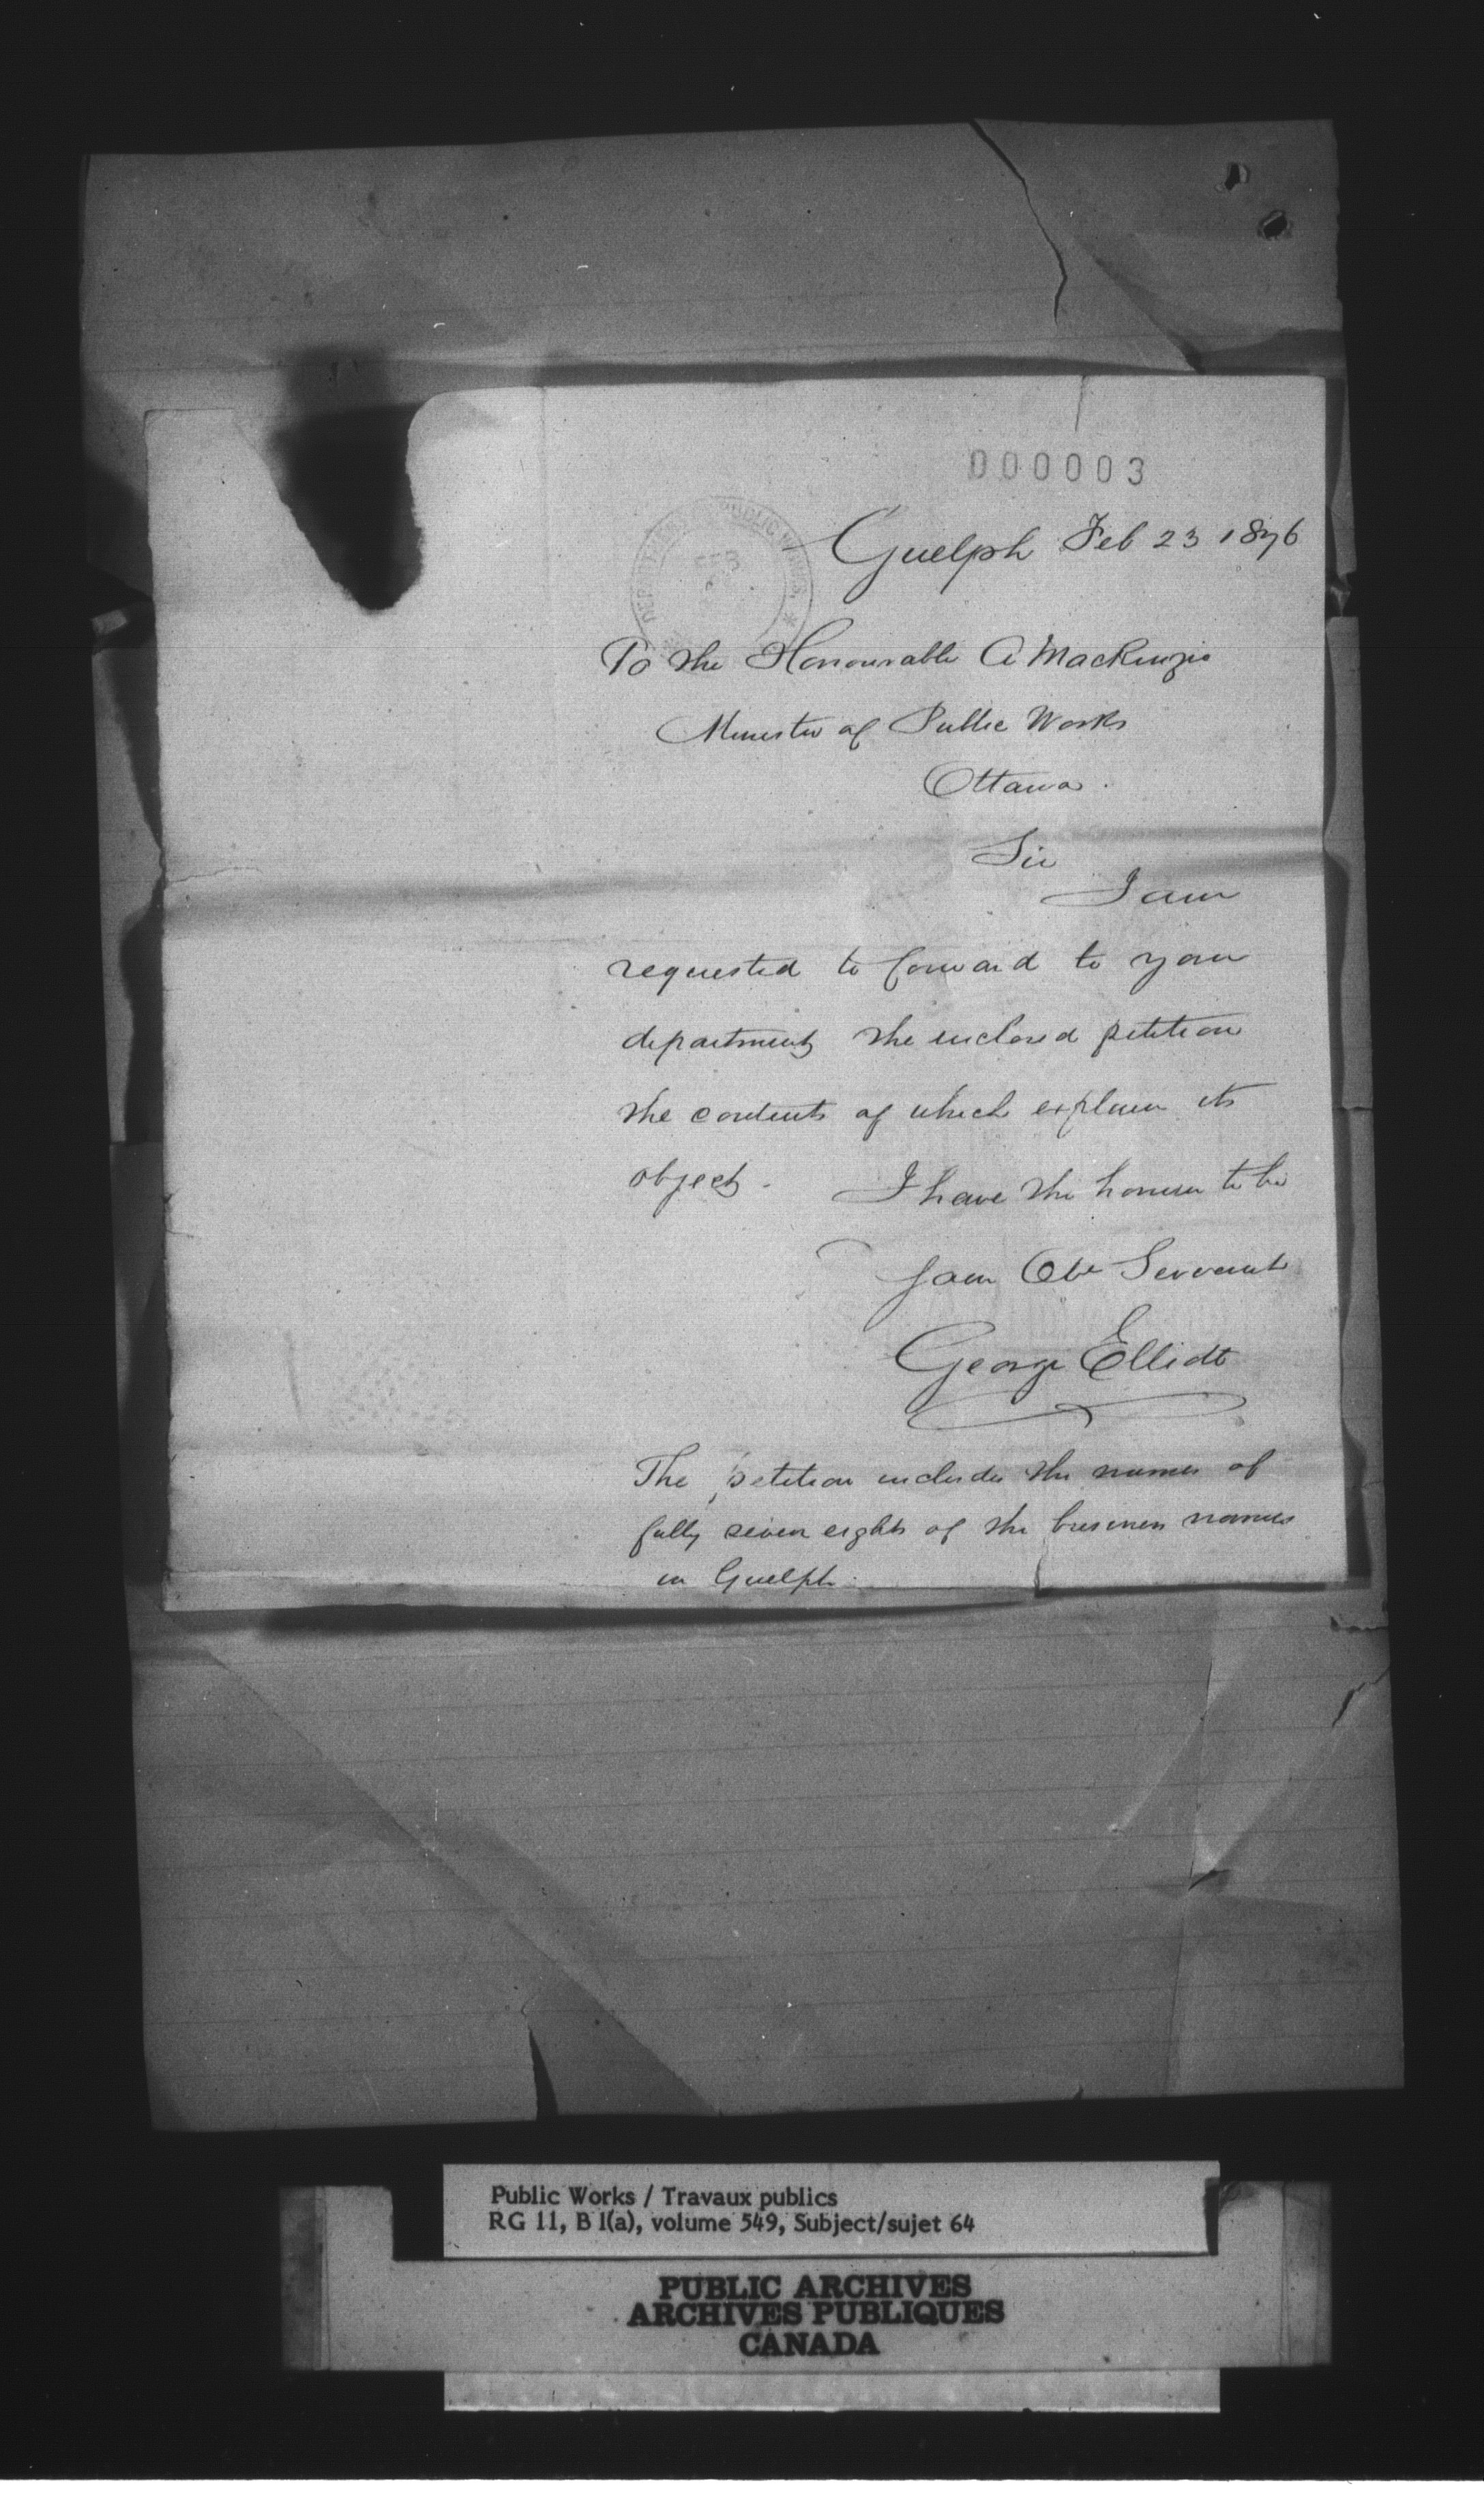 000003
DEPARTMENT OF PUBLIC WORKS *
FEB
Guelph Feb 23 1876
To the Honourable A Mackenzie
Minister of Public Works
Ottawa.
Sir
I am
requested to forward to your
department the enclosed petition
the contents of which explain its
object.
I have the honour to be
Your Obt Servant
George Elliott
The petition includes the names of
fully seven eights of the business names
in Guelph.
Public Works / Travaux publics
RG 11, B 1(a), volume 549, Subject/sujet 64
PUBLIC ARCHIVES
ARCHIVES PUBLIQUES
CANADA